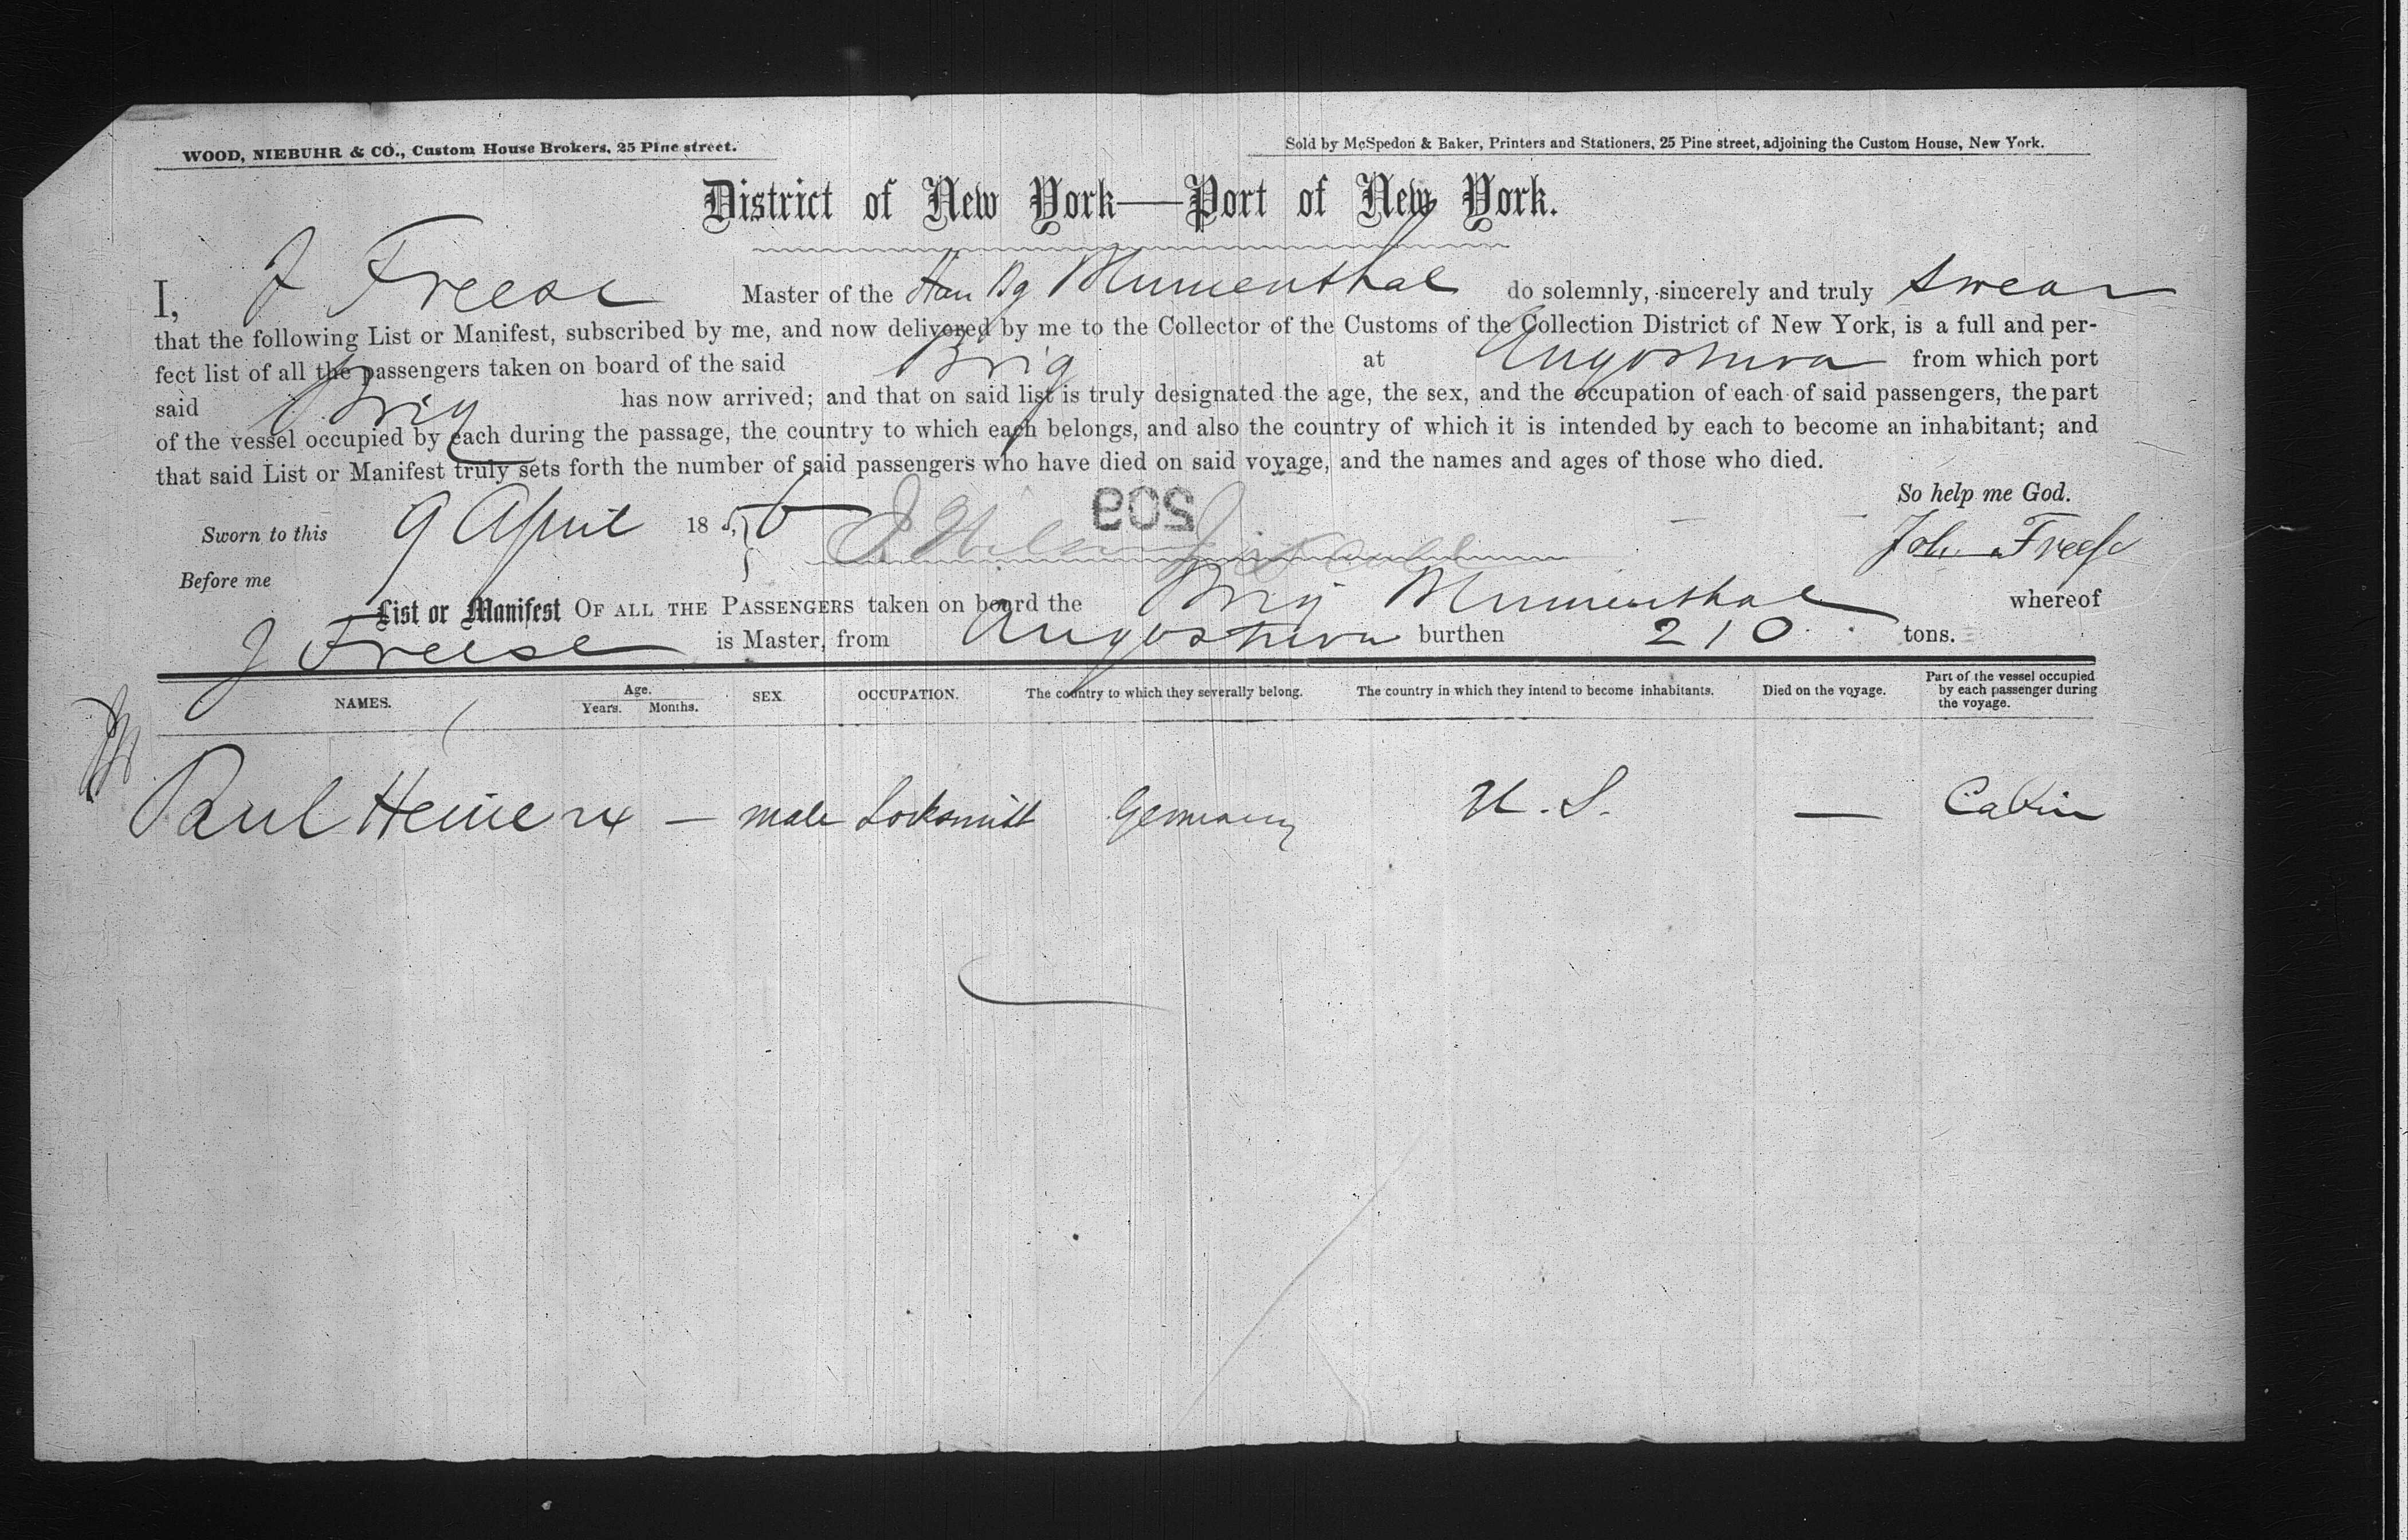 WOOD, NIEBUHR & CO., Custom House Brokers, 25 Pine street.
Sold by McSpedon & Baker, Printers and Stationers, 25 Pine street, adjoining the Custom House, New York.
District of New York—Port of New York.
I, J Freese Master of the Han Bg Blumenthal do solemnly, sincerely and truly swear
that the following List or Manifest, subscribed by me, and now delivered by me to the Collector of the Customs of the Collection District of New York, is a full and per-
fect list of all the passengers taken on board of the said Brig at Angostura from which port
said Brig has now arrived; and that on said list is truly designated the age, the sex, and the occupation of each of said passengers, the part
of the vessel occupied by each during the passage, the country to which each belongs, and also the country of which it is intended by each to become an inhabitant; and
that said List or Manifest truly sets forth the number of said passengers who have died on said voyage, and the names and ages of those who died.
So help me God.
Sworn to this 9 April 1856
509
Joh. Freese
Before me
List or Manifest OF ALL THE PASSENGERS taken on board the Brig Blumenthal whereof
J Freese is Master, from Angostura burthen 210 tons.
NAMES. Age. Years. Months. SEX. OCCUPATION. The country to which they severally belong. The country in which they intend to become inhabitants. Died on the voyage. Part of the vessel occupied by each passenger during the voyage.
Paul Heine 24 — male Locksmith Germany U. S. — Cabin